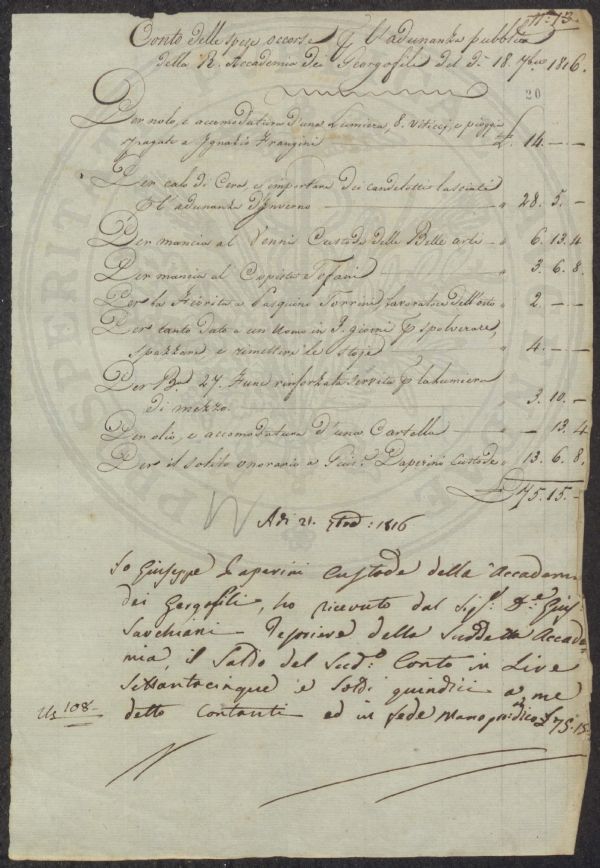 N.° 13.
Conto delle spese occorse p l'adunanza pubblica
della R. Accademia dei Georgofili del dì 18. 7bre 1816.
20
Per nolo, e accomodatura d'una Lumiera, 8. Viticci, e
pagate a Ignazio Frangini £. 14. — —
Per calo di Cera, e importare dei candelotti lasciati
p l'adunanza d'Inverno — " 28. 5. —
Per mancia al Vennis Custode delle Belle arti — " 6. 13. 4
Per mancia al Copista Tofani — " 3. 6. 8.
Per la Fiorita a Pasquino Torrini, lavoratore dell'orto " 2. — —
Per tanto dato a un Uomo in 3. giorni p spolverare,
spazzare e rimettere le stoje — " 4. — —
Per Ba 27. Fune rinforzata servita p la lumiera
di mezzo — " 3. 10. —
Per olio, e accomodatura d'una Cartella — " — 13. 4
Per il solito onorario a Giu.e Paperini Custode " 13. 6. 8.
£ 75. 15. —
Adì 21. 8bre: 1816
Io Giuseppe Paperini Custode della Accademia
dei Gergofili, ho ricevuto dal Sig.r D.re Gius.
Sarchiani Tesoriere della Suddetta Accade=
mia, il Saldo del Sud.o Conto in Lire
Settantacinque e Soldi quindici a me
detto Contanti ed in fede Mano pro. dico £ 75. 15.
Us 108